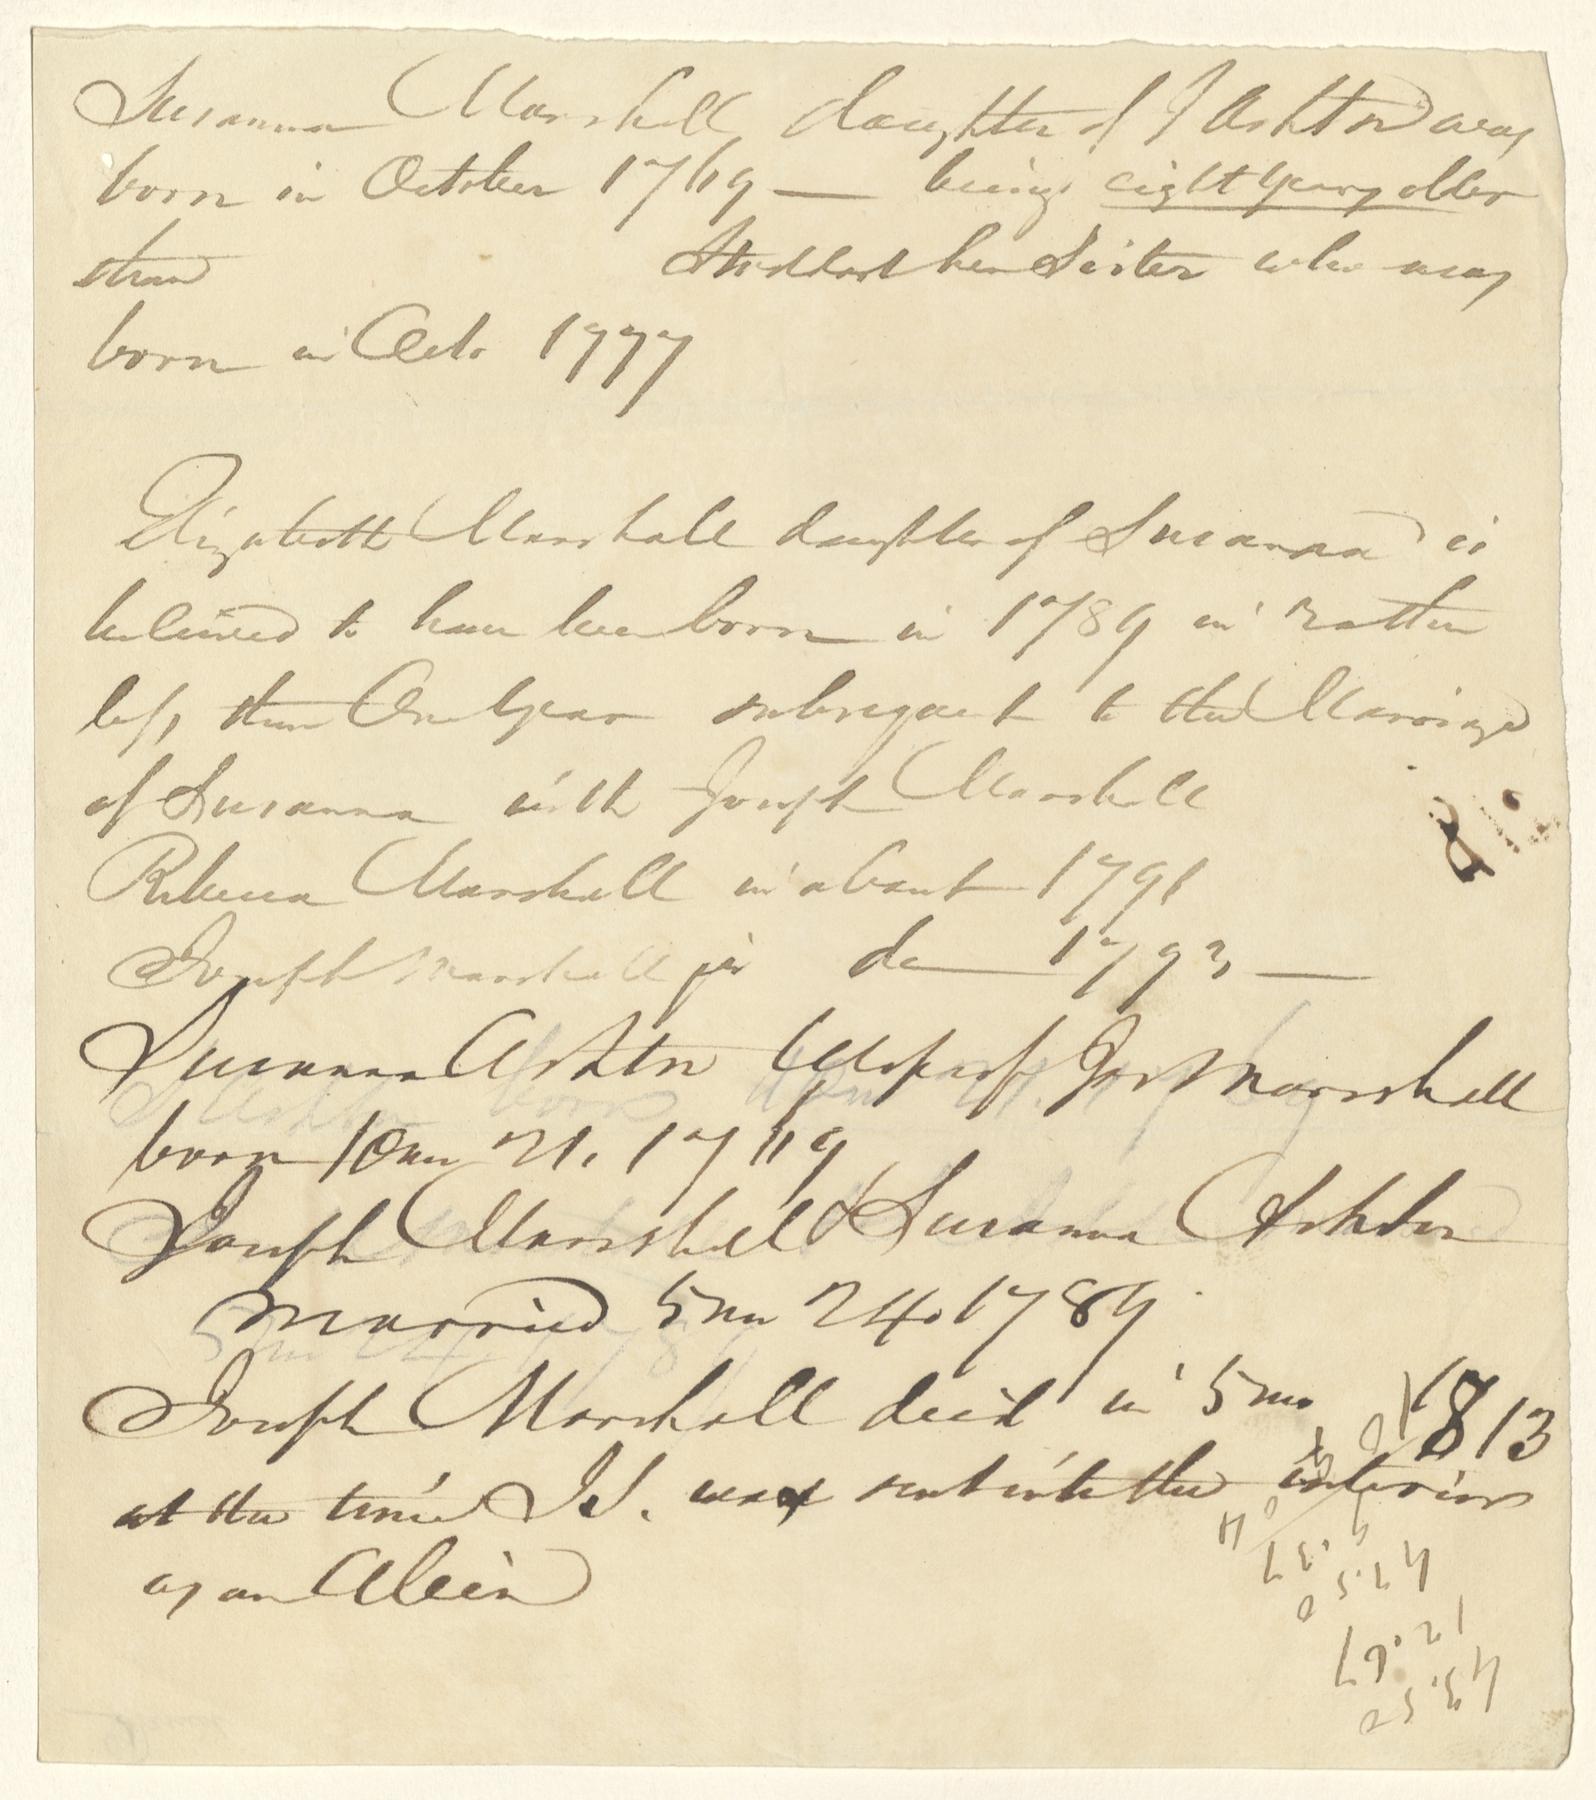 Susanna Marshall, daughter of J Ashton was
born in October 1769 — being eight years older
than Stoddart her Sister who was
born in Octo 1777
Elizabeth Marshall daughter of Susanna is
believed to have been born in 1789 in rather
less than One Year subsequent to the Marriage
of Susanna with Joseph Marshall
Rebecca Marshall in about 1791
Joseph Marshall jr do 1793 —
Susanna Ashton Wife of Jos Marshall
born 10 mo 21. 1769
Joseph Marshall & Susanna Ashton
married 5 mo 24. 1789
Joseph Marshall died in 5 mo 1813
at the time J.S. was sent into the interior
as an Alien
47.50
12.67
43.50